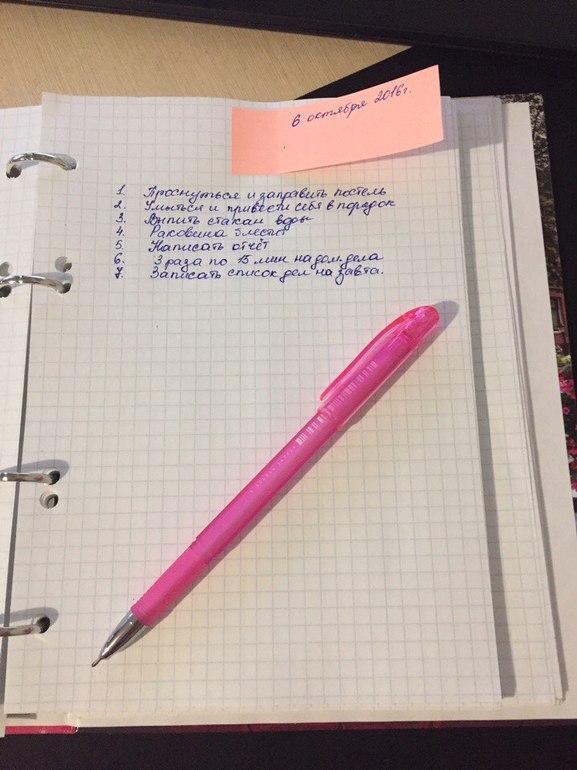 6 октября 2016г.
1. Проснуться и заправить постель
2. Умыться и привести себя в порядок
3. Выпить стакан воды
4. Раковина блестит
5. Написать отчёт
6. 3 раза по 15 мин на дом. дела
7. Записать список дел на завта.